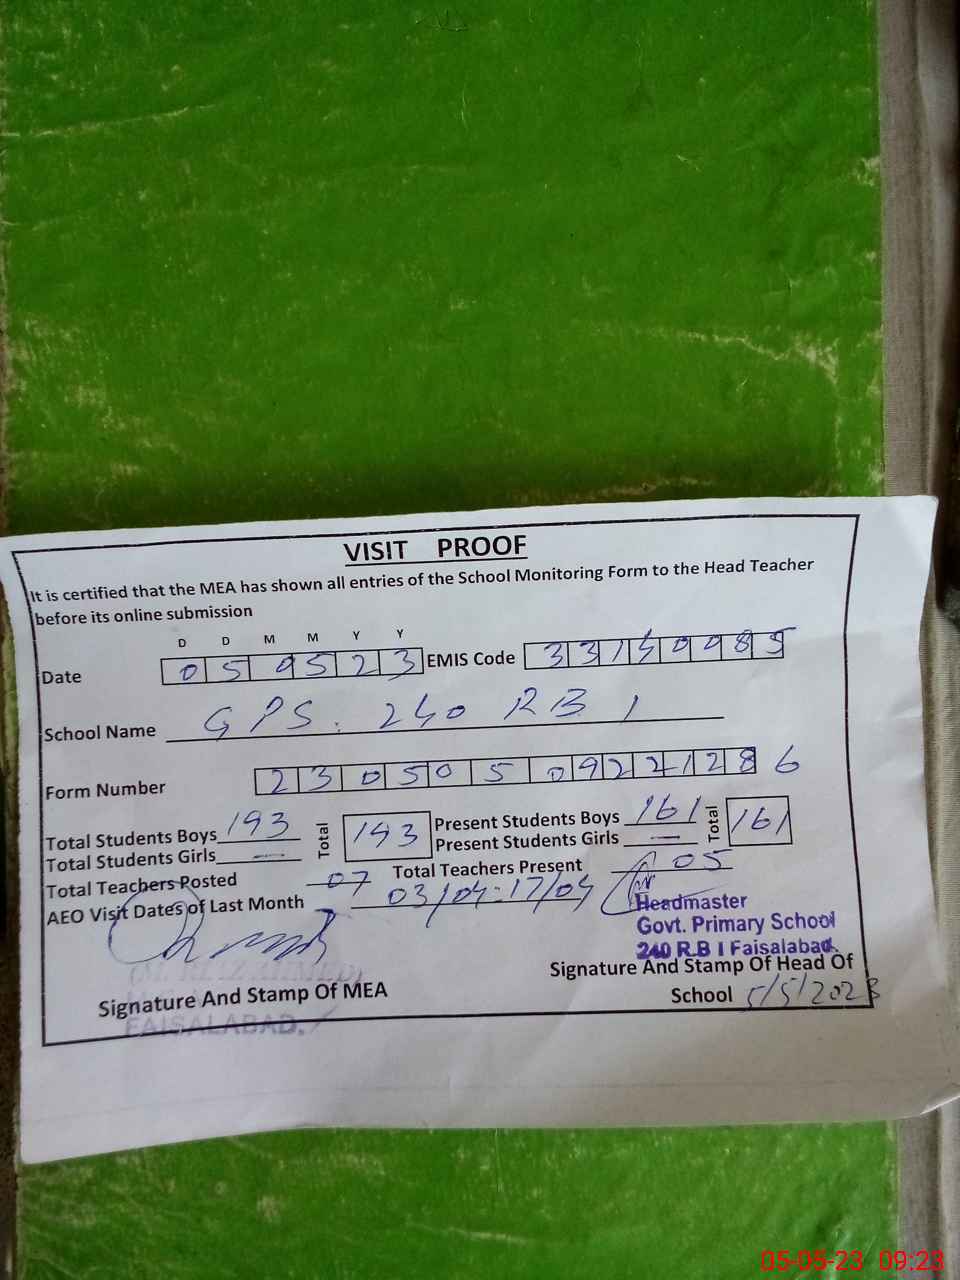 VISIT PROOF
It is certified that the MEA has shown all entries of the School Monitoring Form to the Head Teacher
before its online submission
D D M M Y Y
Date 0 5 0 5 2 3 EMIS Code 3 3 1 4 0 0 8 5
School Name GPS. 240 RB 1
Form Number 2 3 0 5 0 5 0 9 2 2 1 2 8 6
Total Students Boys 193 Total 193 Present Students Boys 161 Total 161
Total Students Girls — Present Students Girls —
Total Teachers Posted 07 Total Teachers Present 05
AEO Visit Dates of Last Month 03/04-17/04
Headmaster
Govt. Primary School
240 R.B I Faisalabad.
Signature And Stamp Of MEA
FAISALABAD.
Signature And Stamp Of Head Of
School 5/5/2023
05-05-23 09:23